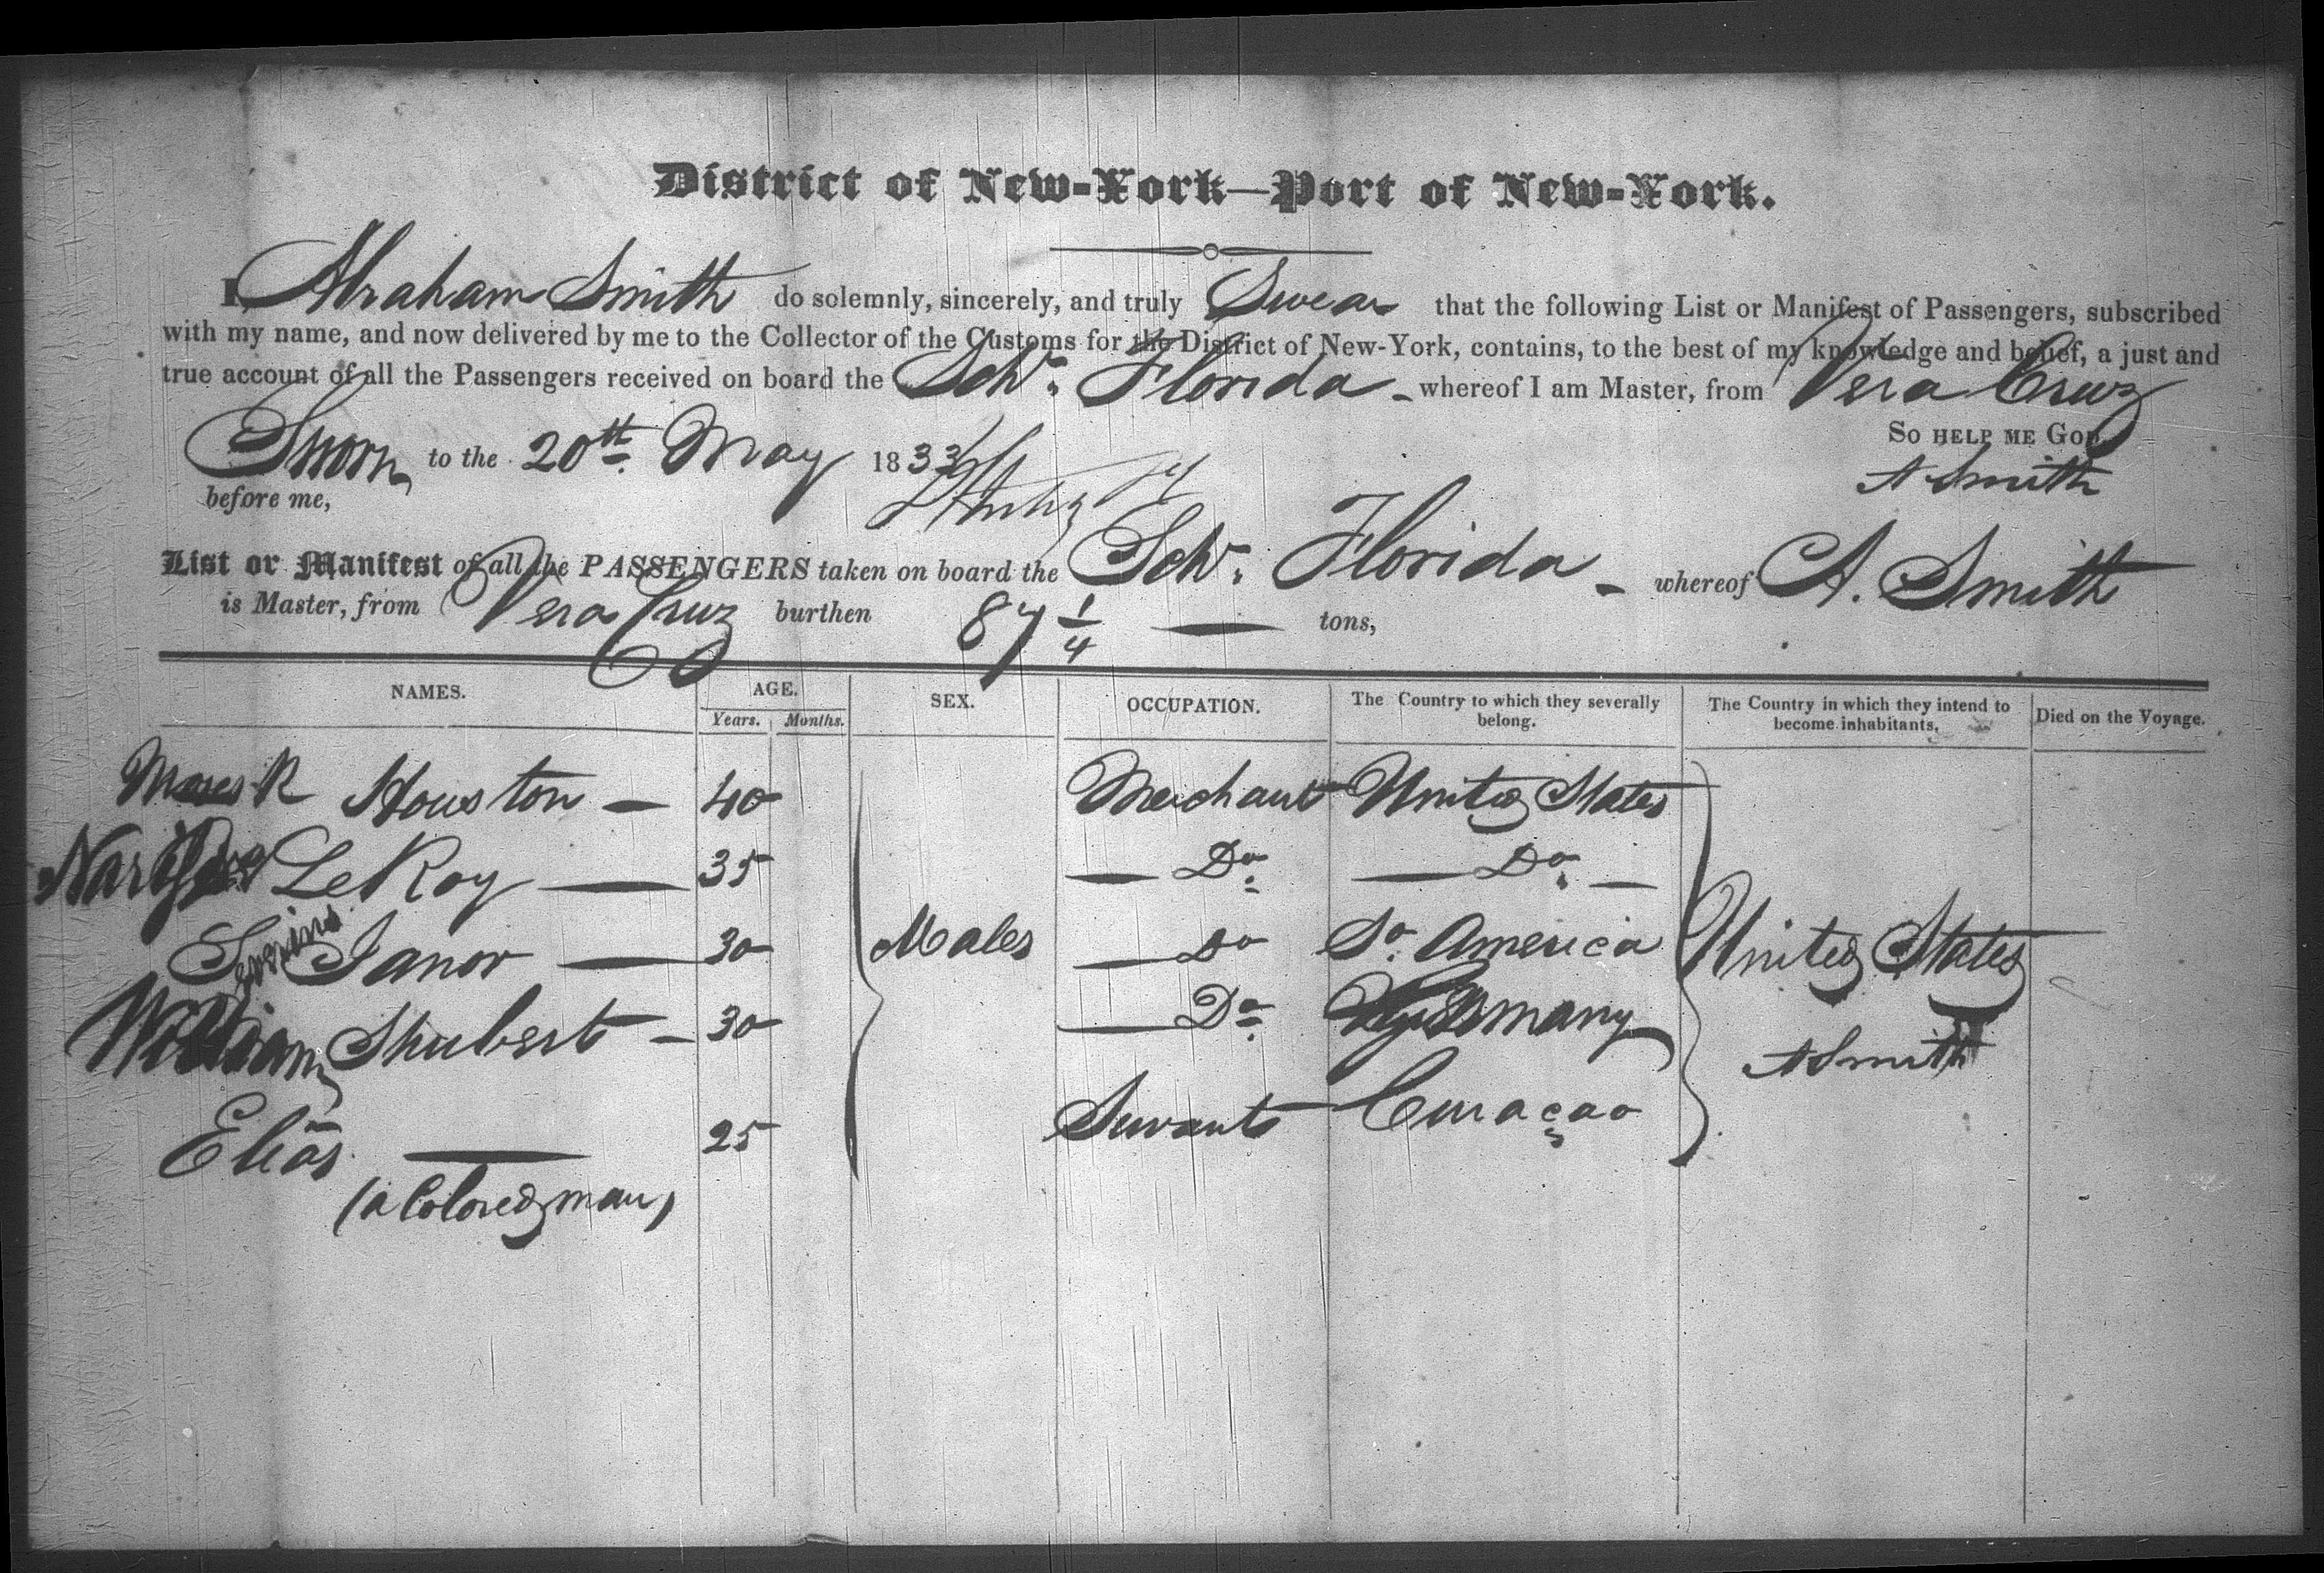 District of New-York—Port of New-York.
I, Abraham Smith do solemnly, sincerely, and truly Swear that the following List or Manifest of Passengers, subscribed
with my name, and now delivered by me to the Collector of the Customs for the District of New-York, contains, to the best of my knowledge and belief, a just and
true account of all the Passengers received on board the Schr. Florida - whereof I am Master, from Vera Cruz
So HELP ME GOD.
Sworn to the 20th May 1833
A Smith
before me,
List or Manifest of all the PASSENGERS taken on board the Schr. Florida - whereof A. Smith
is Master, from Vera Cruz burthen 87 1/4 — tons,
NAMES. AGE. Years. Months. SEX. OCCUPATION. The Country to which they severally belong. The Country in which they intend to become inhabitants. Died on the Voyage.
Moses R Houston — 40 Merchant United States
LeRoy — 35 — Do — Do. —
Janor — 30 Males — Do So. America United States
William Shubert — 30 — Do Germany
A Smith
Elias — 25 Servant Curaçao
(a Colored man)